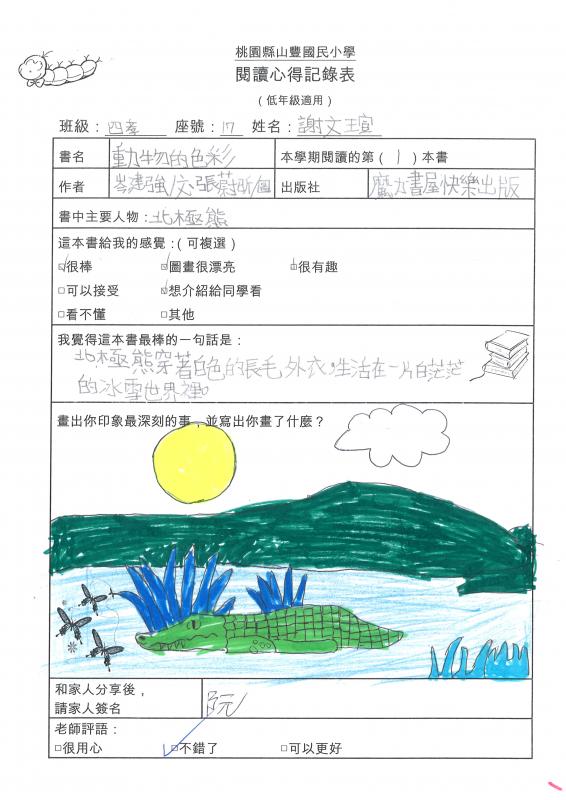 桃園縣山豐國民小學
閱讀心得記錄表
（低年級適用）
班級：四孝 座號：17 姓名：謝文瑄
書名 動物的色彩 本學期閱讀的第（1）本書
作者 岑建強/文、張蔚昕/圖 出版社 魔力書屋快樂出版
書中主要人物：北極熊
這本書給我的感覺：（可複選）
☑很棒 ☑圖畫很漂亮 ☑很有趣
□可以接受 ☑想介紹給同學看
□看不懂 □其他
我覺得這本書最棒的一句話是：
北極熊穿著白色的長毛外衣，生活在一片白茫茫
的冰雪世界裡。
畫出你印象最深刻的事，並寫出你畫了什麼？
和家人分享後，
請家人簽名 阮
老師評語：
□很用心 ☑不錯了 □可以更好